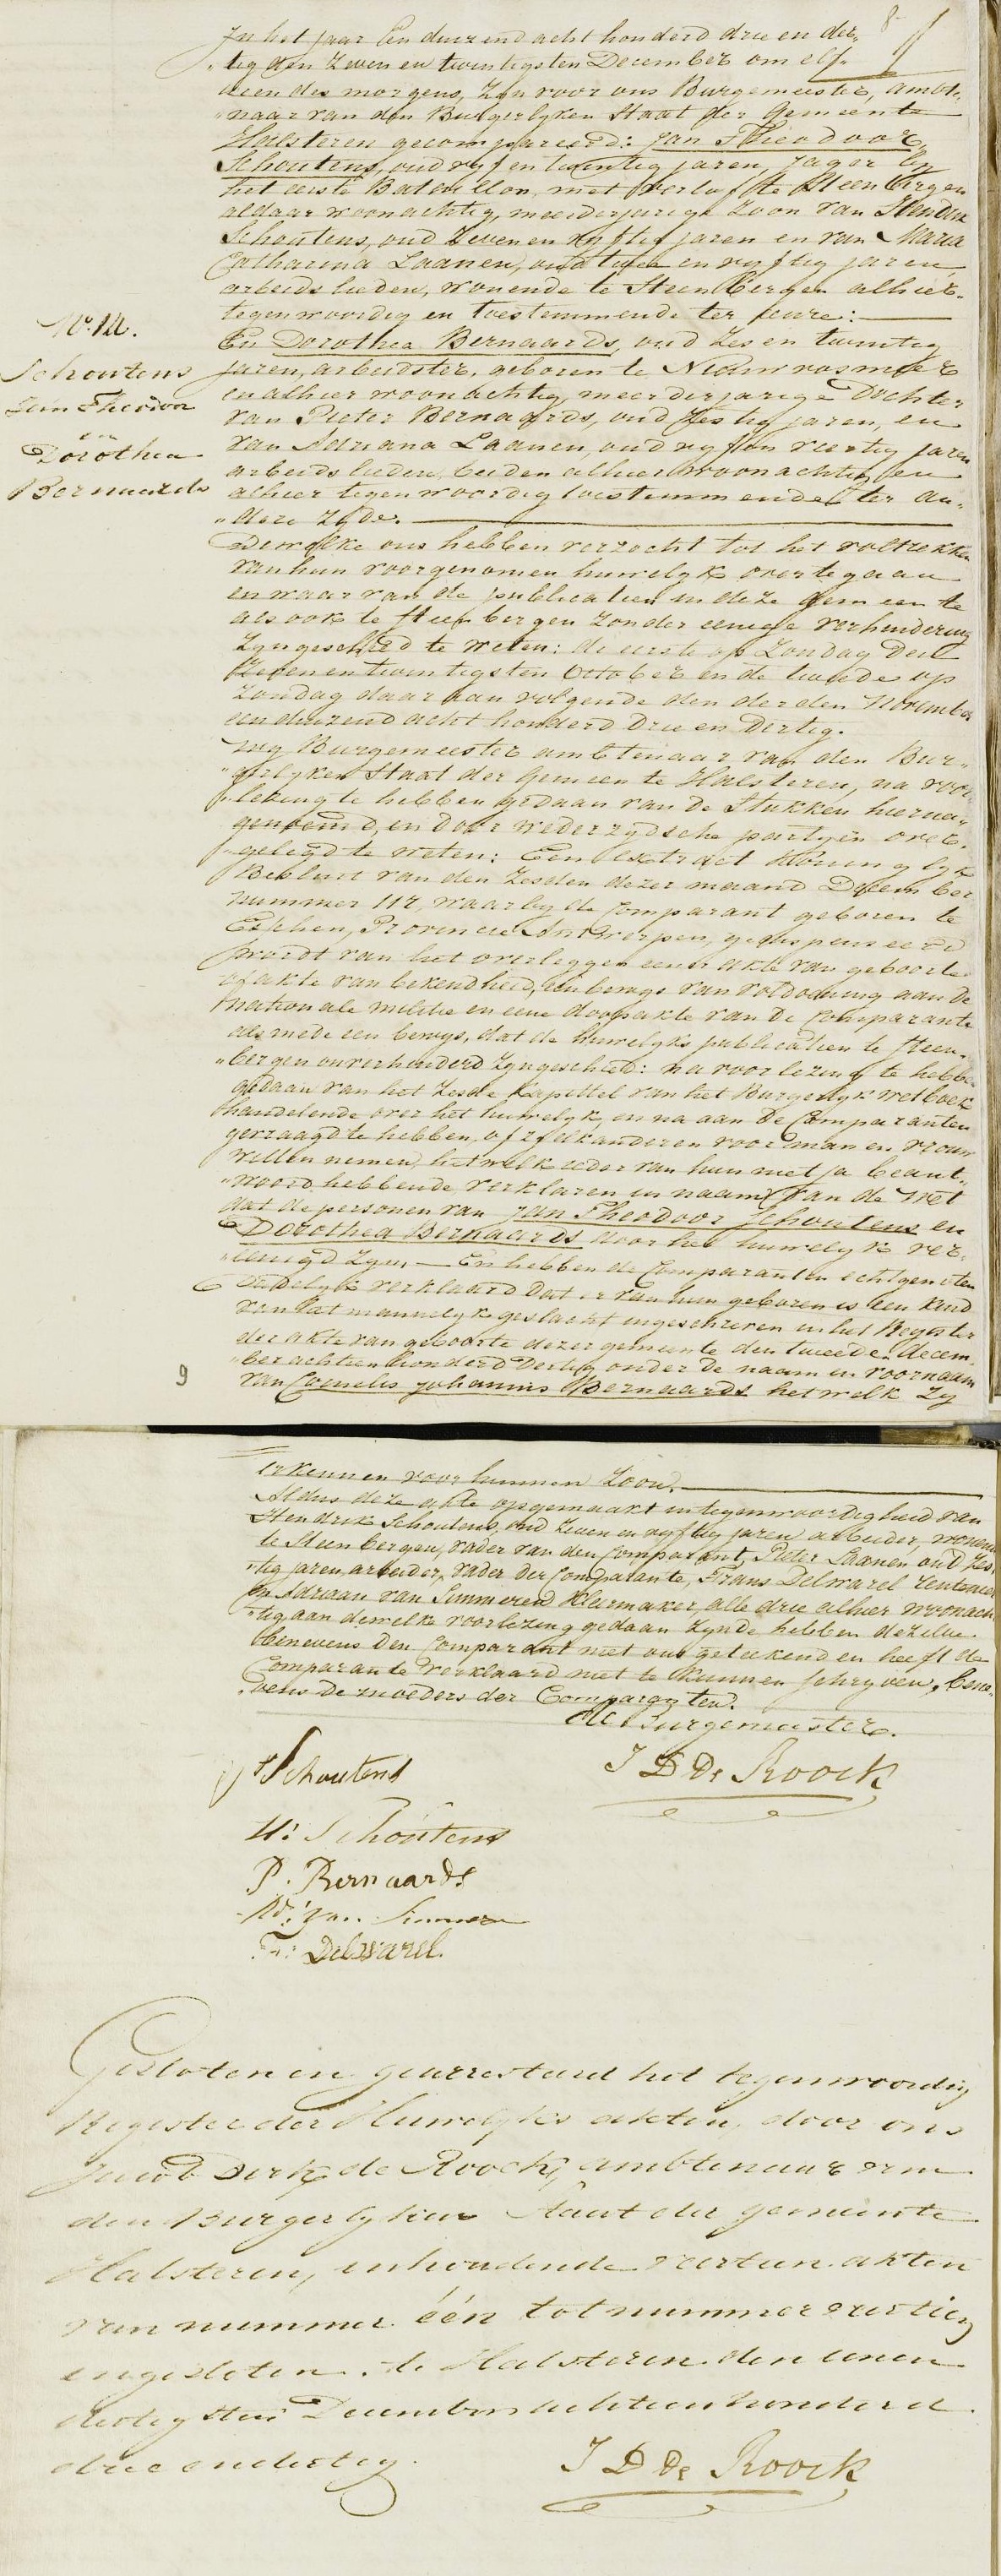 8
In het jaar Een duizend acht honderd drie en der„
„tig den Zeven en twintigsten December om elf„
uren des morgens, zyn voor ons Burgemeester, ambt„
„naar van den Burgerlyken Staat der Gemeente
Halsteren gecompareerd: Jan Theodoor
Schoutens, oud vyf en twintig jaren, Jager by
het eerste Bataillon, met verlof te Steenbergen
aldaar woonachtig, meerderjarige Zoon van Hendrik
Schoutens, oud Zeven en vyftig jaren en van Maria
Catharina Laanen, oud twee en vyftig jaren
arbeidslieden, wonende te Steenbergen alhier
tegenwoordig en toestemmende ter eenre:
No. 14.
Schoutens
Jan Theodoor
en
Dorothea
Bernaards
En Dorothea Bernaards, oud Zes en twintig
jaren, arbeidster, geboren te Nieuwvosmeer
en alhier woonachtig, meerderjarige Dochter
van Pieter Bernaards, oud Zestig jaren, en
van Adriana Laanen, oud vyf en veertig jaren
arbeidslieden, beiden alhier woonachtig en
alhier tegenwoordig toestemmende ter an„
„dere zyde.
Dewelke ons hebben verzocht tot het voltrekken
van hun voorgenomen huwelyk over te gaan
en waar van de publicatien in deze gemeente
als ook te Steenbergen zonder eenige verhindering
Zyn geschied te weten: de eerste op Zondag den
Zeven en twintigsten October en de tweede op
Zondag daar aan volgende den derden November
een duizend acht honderd Drie en Dertig.
Wy Burgemeester ambtenaar van den Bur„
„gerlyken Staat der Gemeente Halsteren, na voor„
„lezing te hebben gedaan van de Stukken hierna„
genoemd, en door wederzydsche partyen over„
„gelegd te weten: Een extract Koninglyk
Besluit van den Zesden dezer maand December
nummer 112, waarby de Comparant geboren te
Esschen, Provincie Antwerpen, gedispenseerd
wordt van het overleggen eener akte van geboorte
of akte van bekendheid, een bewys van voldoening aan de
Nationale militie en eene doopakte van de Comparante
als mede een bewys, dat de huwelyks publicatien te Steen„
„bergen onverhinderd zyn geschied: na voorlezing te hebben
gedaan van het Zesde Kapittel van het Burgerlyk wetboek
handelende over het huwelyk, en na aan De Comparanten
gevraagd te hebben, of zy elkanderen voor man en vrouw
willen nemen, hetwelk ieder van hun met ja beant„
„woord hebbende, verklaren in naam van de Wet
dat de personen van Jan Theodoor Schoutens en
Dorothea Bernaards door het huwelyk ver„
„eenigd zyn, — En hebben de Comparanten echtgenoten
Eindelyk verklaard dat er van hun geboren is een kind
van het mannelyk geslacht ingeschreven in het Register
der akte van geboorte dezer gemeente den tweeden decem„
„ber achttien honderd Dertig onder de naam en voornaam
van Cornelis Johannis Bernaards hetwelk zy
9
erkennen voor hunnen Zoon.
Aldus deze akte opgemaakt in tegenwoordigheid van
Hendrik Schoutens, oud Zeven en vyftig jaren arbeider, wonende
te Steenbergen, vader van den Comparant, Pieter Laanen oud zes„
„tig jaren, arbeider, vader der Comparante, Frans Delwarel
en Adriaan van Simmeren Kleermaker, alle drie alhier woonach„
„tig aan dewelke voorlezing gedaan zynde hebben dezelve
benevens den Comparant met ons geteekend en heeft de
Comparante verklaard niet te kunnen schryven, bene„
„vens de moeders der Comparanten.
De Burgemeester.
J D De Roock
Schoutens
H: Schoutens
P. Bernaards
Ad: van Simmeren
F: Delwarel
Gesloten en gearresteerd het tegenwoordig
Register der Huwelyks akten, door ons
Jacob Dirk de Roock, ambtenaar van
den Burgerlyken Staat der gemeente
Halsteren, inhoudende veertien akten
van nummer één tot nummer veertien
ingesloten. te Halsteren den eenen
dertigsten December achttien honderd
drie en dertig.
J D De Roock